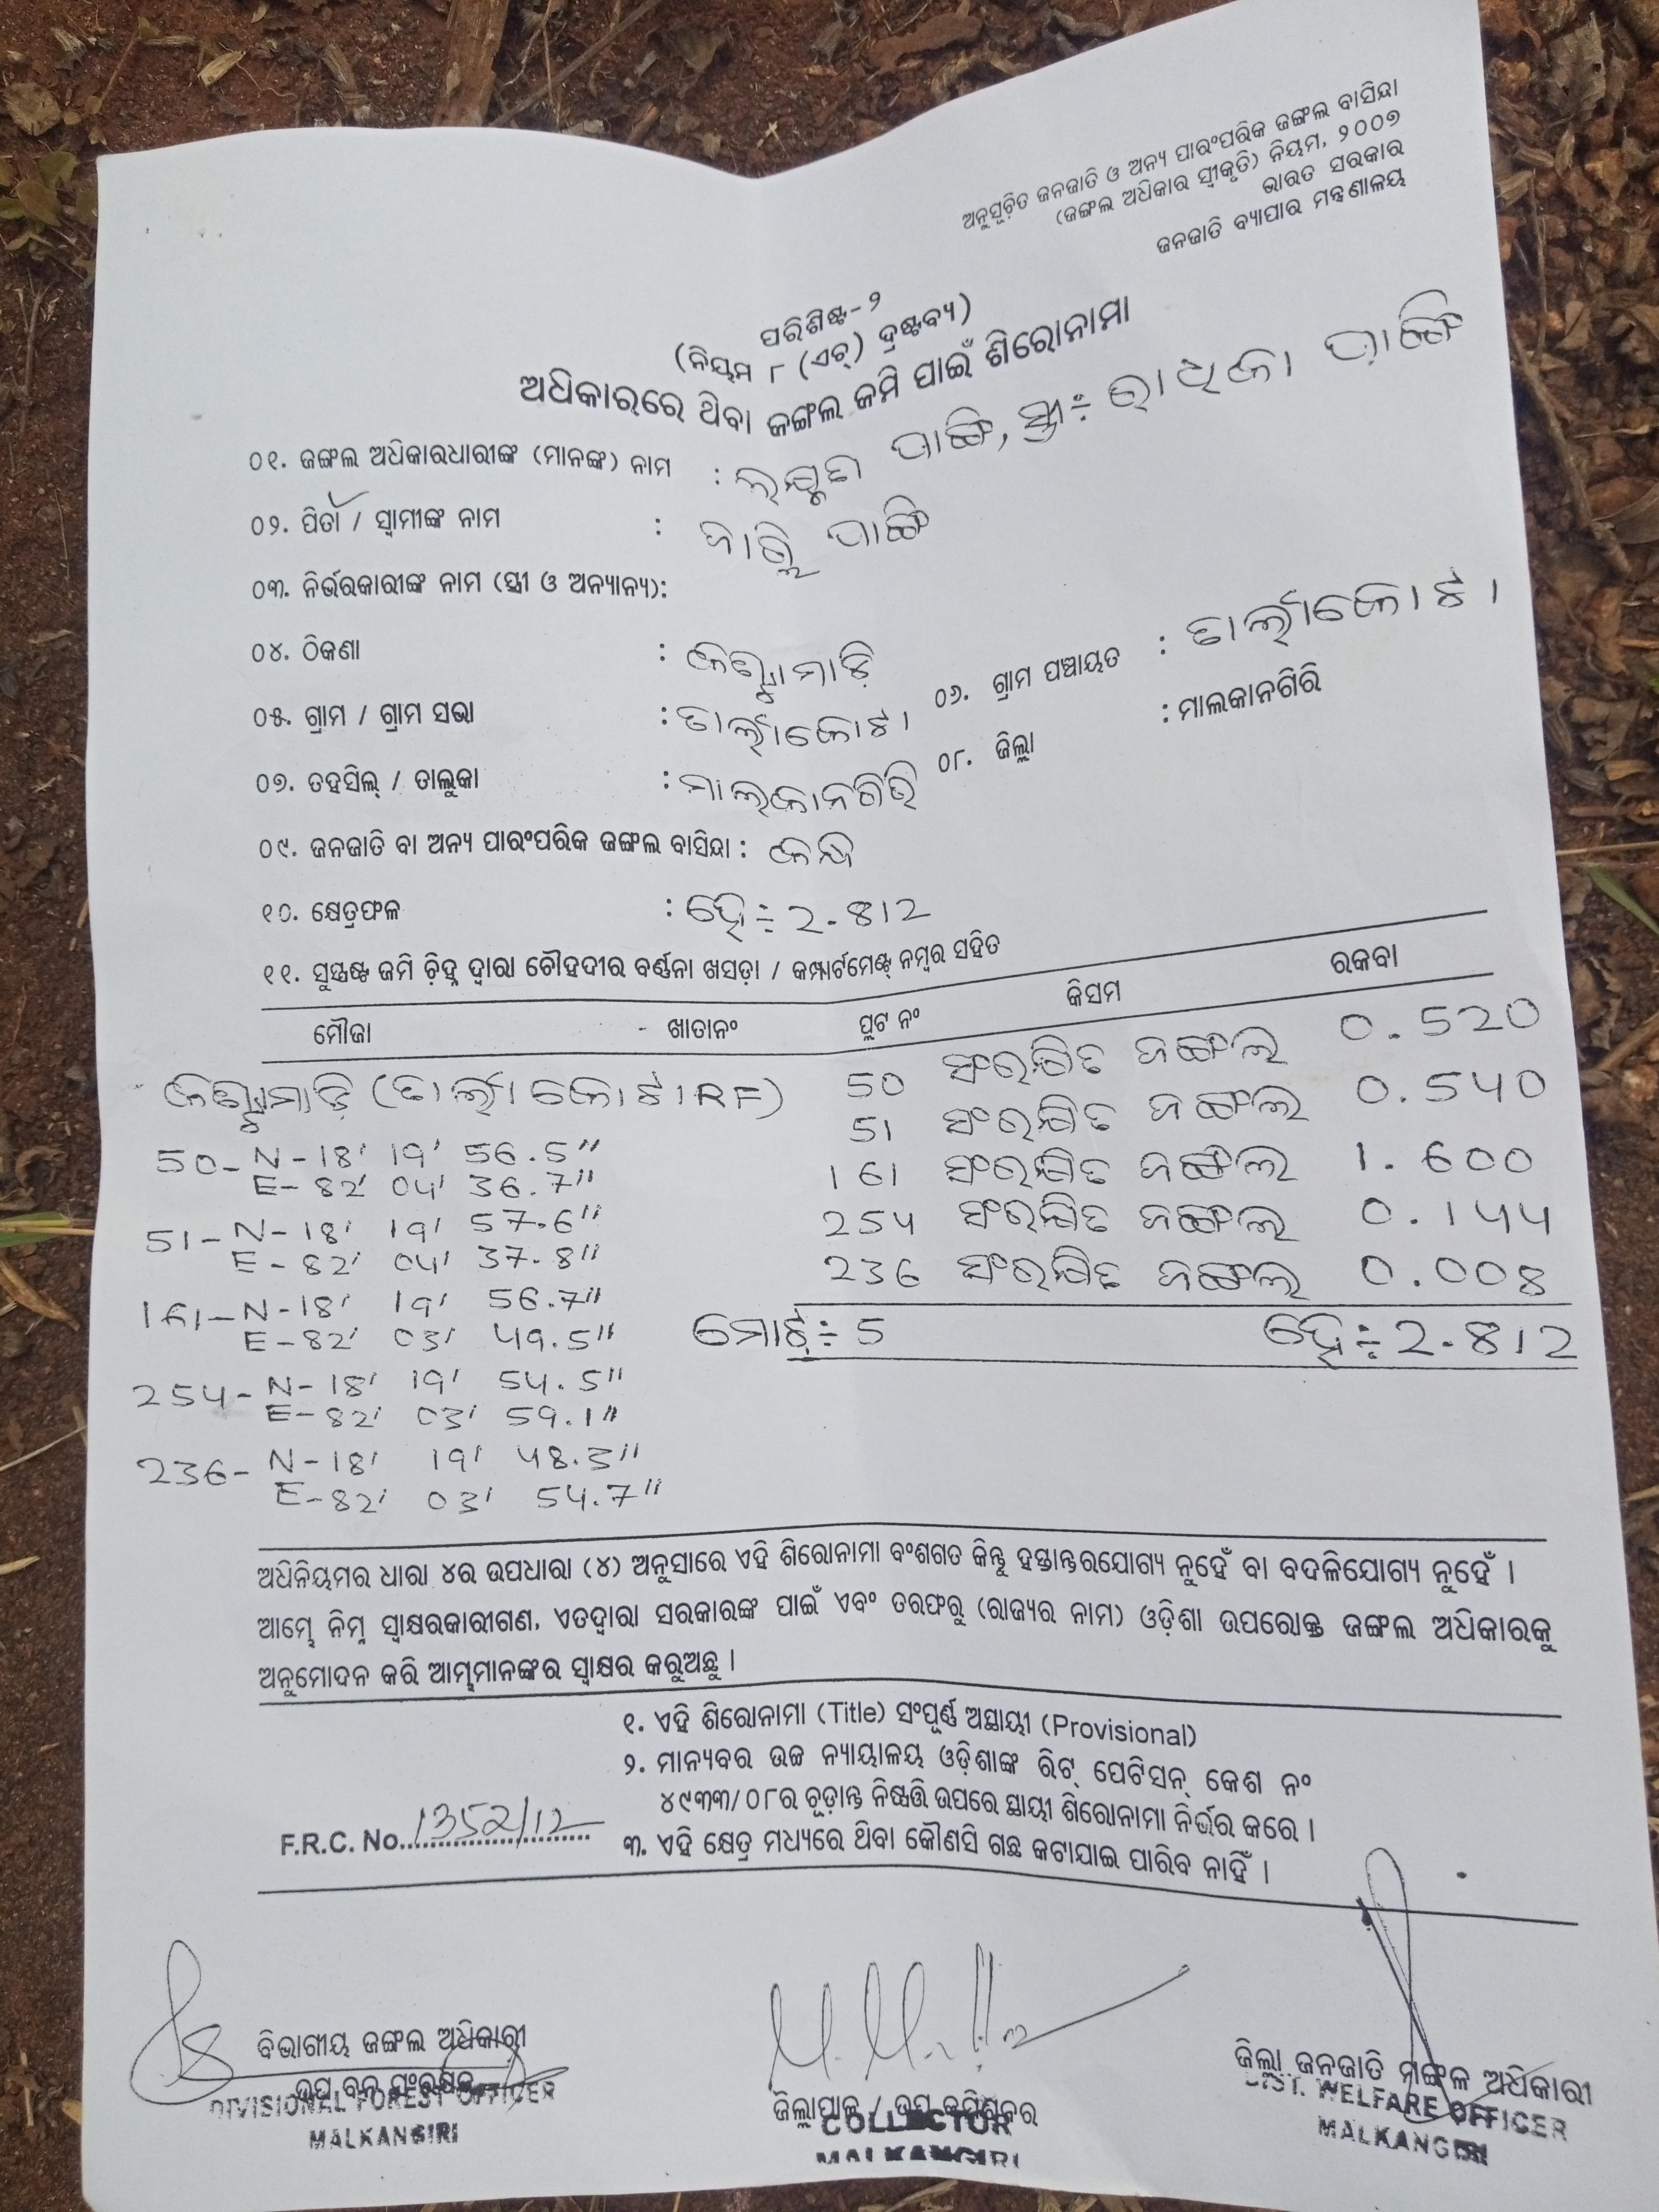 ଅନୁସୂଚିତ ଜନଜାତି ଓ ଅନ୍ୟ ପାରଂପରିକ ଜଙ୍ଗଲ ବାସିନ୍ଦା
(ଜଙ୍ଗଲ ଅଧିକାର ସ୍ୱୀକୃତି) ନିୟମ, ୨୦୦୭
ଭାରତ ସରକାର
ଜନଜାତି ବ୍ୟାପାର ମନ୍ତ୍ରଣାଳୟ
ପରିଶିଷ୍ଟ-୨
(ନିୟମ ୮ (ଏଚ୍) ଦ୍ରଷ୍ଟବ୍ୟ)
ଅଧିକାରରେ ଥିବା ଜଙ୍ଗଲ ଜମି ପାଇଁ ଶିରୋନାମା
୦୧. ଜଙ୍ଗଲ ଅଧିକାରଧାରୀଙ୍କ (ମାନଙ୍କ) ନାମ : ପାଙ୍ଗି, ସ୍ତ୍ରୀ÷ ରାଧିକା ପାଙ୍ଗି
୦୨. ପିତା / ସ୍ୱାମୀଙ୍କ ନାମ : ପାଙ୍ଗି
୦୩. ନିର୍ଭରକାରୀଙ୍କ ନାମ (ସ୍ତ୍ରୀ ଓ ଅନ୍ୟାନ୍ୟ):
୦୪. ଠିକଣା :
୦୫. ଗ୍ରାମ / ଗ୍ରାମ ସଭା : ତାର୍ଲାକୋଟା ୦୬. ଗ୍ରାମ ପଞ୍ଚାୟତ : ତାର୍ଲାକୋଟା
୦୭. ତହସିଲ୍ / ତାଲୁକା : ମାଲକାନଗିରି ୦୮. ଜିଲ୍ଲା : ମାଲକାନଗିରି
୦୯. ଜନଜାତି ବା ଅନ୍ୟ ପାରଂପରିକ ଜଙ୍ଗଲ ବାସିନ୍ଦା : କନ୍ଧ
୧୦. କ୍ଷେତ୍ରଫଳ : ହେ÷ 2.812
୧୧. ସୁସ୍ପଷ୍ଟ ଜମି ଚିହ୍ନ ଦ୍ୱାରା ଚୌହଦୀର ବର୍ଣ୍ଣନା ଖସଡ଼ା / କମ୍ପାର୍ଟମେଣ୍ଟ୍ ନମ୍ବର ସହିତ
ମୌଜା ଖାତାନଂ ପ୍ଲଟ ନଂ କିସମ ରକବା
(ତାର୍ଲାକୋଟା RF) 50 ସଂରକ୍ଷିତ ଜଙ୍ଗଲ 0.520
51 ସଂରକ୍ଷିତ ଜଙ୍ଗଲ 0.540
161 ସଂରକ୍ଷିତ ଜଙ୍ଗଲ 1.600
254 ସଂରକ୍ଷିତ ଜଙ୍ଗଲ 0.144
236 ସଂରକ୍ଷିତ ଜଙ୍ଗଲ 0.008
ମୋଟ÷ 5 ହେ÷ 2.812
50- N-18' 19' 56.5"
E-82' 04' 36.7"
51- N-18' 19' 57.6"
E-82' 04' 37.8"
161- N-18' 19' 56.7"
E-82' 03' 49.5"
254- N-18' 19' 54.5"
E-82' 03' 59.1"
236- N-18' 19' 48.3"
E-82' 03' 54.7"
ଅଧିନିୟମର ଧାରା ୪ର ଉପଧାରା (୪) ଅନୁସାରେ ଏହି ଶିରୋନାମା ବଂଶଗତ କିନ୍ତୁ ହସ୍ତାନ୍ତରଯୋଗ୍ୟ ନୁହେଁ ବା ବଦଳିଯୋଗ୍ୟ ନୁହେଁ ।
ଆମ୍ଭେ ନିମ୍ନ ସ୍ୱାକ୍ଷରକାରୀଗଣ, ଏତଦ୍ୱାରା ସରକାରଙ୍କ ପାଇଁ ଏବଂ ତରଫରୁ (ରାଜ୍ୟର ନାମ) ଓଡ଼ିଶା ଉପରୋକ୍ତ ଜଙ୍ଗଲ ଅଧିକାରକୁ
ଅନୁମୋଦନ କରି ଆମ୍ଭମାନଙ୍କର ସ୍ୱାକ୍ଷର କରୁଅଛୁ ।
୧. ଏହି ଶିରୋନାମା (Title) ସଂପୂର୍ଣ୍ଣ ଅସ୍ଥାୟୀ (Provisional)
୨. ମାନ୍ୟବର ଉଚ୍ଚ ନ୍ୟାୟାଳୟ ଓଡ଼ିଶାଙ୍କ ରିଟ୍ ପେଟିସନ୍ କେଶ ନଂ
୪୯୩୩/୦୮ର ଚୂଡ଼ାନ୍ତ ନିଷ୍ପତ୍ତି ଉପରେ ସ୍ଥାୟୀ ଶିରୋନାମା ନିର୍ଭର କରେ ।
୩. ଏହି କ୍ଷେତ୍ର ମଧ୍ୟରେ ଥିବା କୌଣସି ଗଛ କଟାଯାଇ ପାରିବ ନାହିଁ ।
F.R.C. No. 1352/12
ବିଭାଗୀୟ ଜଙ୍ଗଲ ଅଧିକାରୀ
ଉପ ବନ ସଂରକ୍ଷକ
DIVISIONAL FOREST OFFICER
MALKANGIRI
ଜିଲ୍ଲାପାଳ / ଉପ କମିଶନର
COLLECTOR
MALKANGIRI
ଜିଲ୍ଲା ଜନଜାତି ମଙ୍ଗଳ ଅଧିକାରୀ
DIST. WELFARE OFFICER
MALKANGIRI